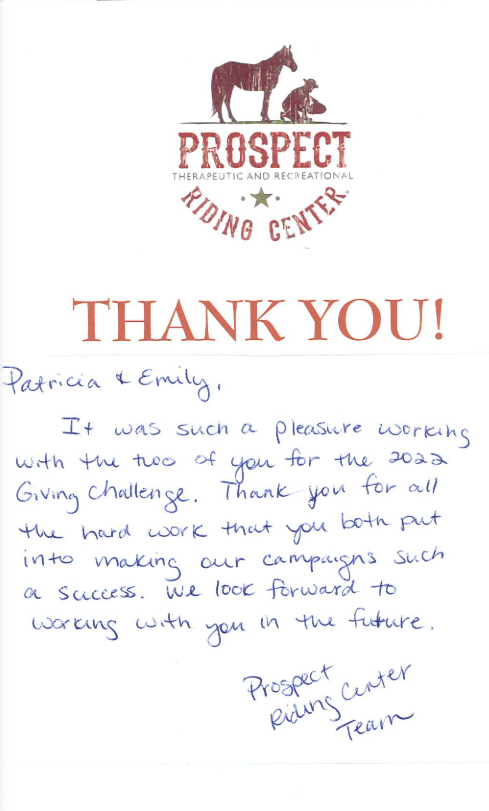 PROSPECT
THERAPEUTIC AND RECREATIONAL
RIDING CENTER
THANK YOU!
Patricia & Emily,
It was such a pleasure working
with the two of you for the 2022
Giving Challenge. Thank you for all
the hard work that you both put
into making our campaigns such
a success. We look forward to
working with you in the future.
Prospect
Riding Center
Team